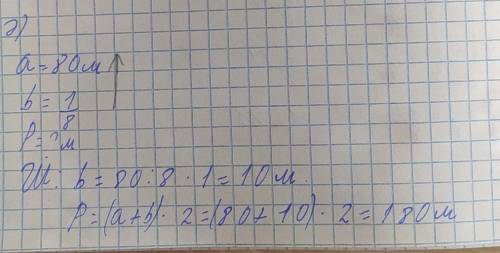 д)
a = 80 м
b = 1/8
P = ? м
Ш: b = 80 : 8 · 1 = 10 м.
P = (a + b) · 2 = (80 + 10) · 2 = 180 м